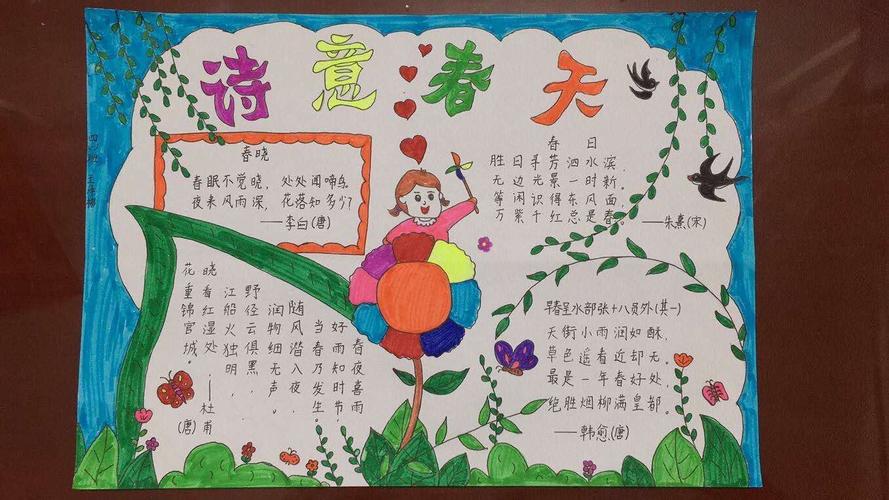 诗意春天
春晓
春眠不觉晓，处处闻啼鸟。
夜来风雨深，花落知多少?
——李白(唐)
春日
胜日寻芳泗水滨，
无边光景一时新。
等闲识得东风面，
万紫千红总是春。
——朱熹(宋)
春夜喜雨
好雨知时节，
当春乃发生。
随风潜入夜
润物细无声。
野径云俱黑，
江船火独明，
晓看红湿处
花重锦官城。
——杜甫
(唐)
早春呈水部张十八员外(其一)
天街小雨润如酥，
草色遥看近却无。
最是一年春好处，
绝胜烟柳满皇都。
——韩愈(唐)